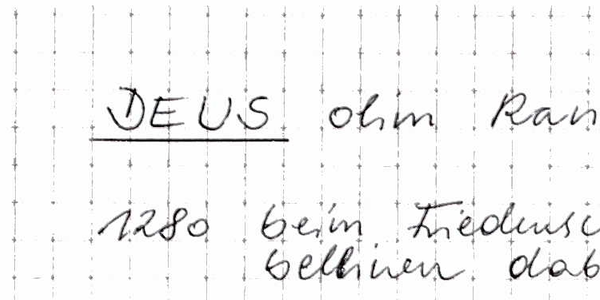 DEUS ohm Ran
1280 beim Friedensc
bellinen dab